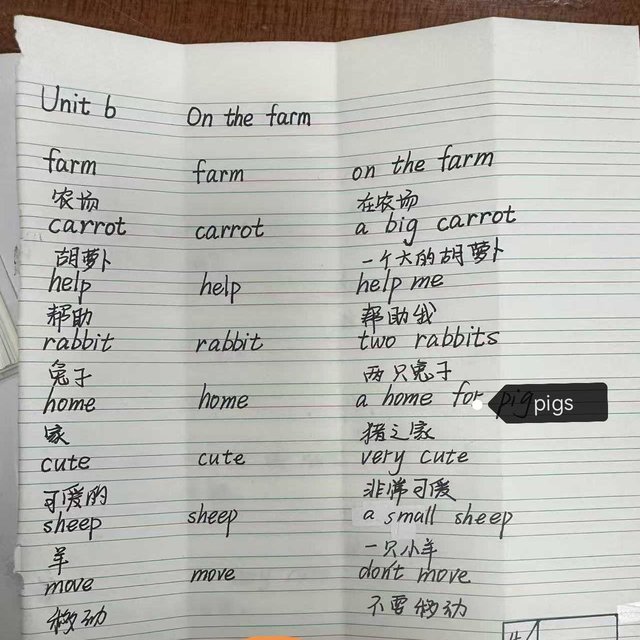 Unit 6 On the farm
farm farm on the farm
农场 在农场
carrot carrot a big carrot
胡萝卜 一个大的胡萝卜
help help help me
帮助 帮助我
rabbit rabbit two rabbits
兔子 两只兔子
home home a home for pigs
家 猪之家
cute cute very cute
可爱的 非常可爱
sheep sheep a small sheep
羊 一只小羊
move move don't move
移动 不要移动